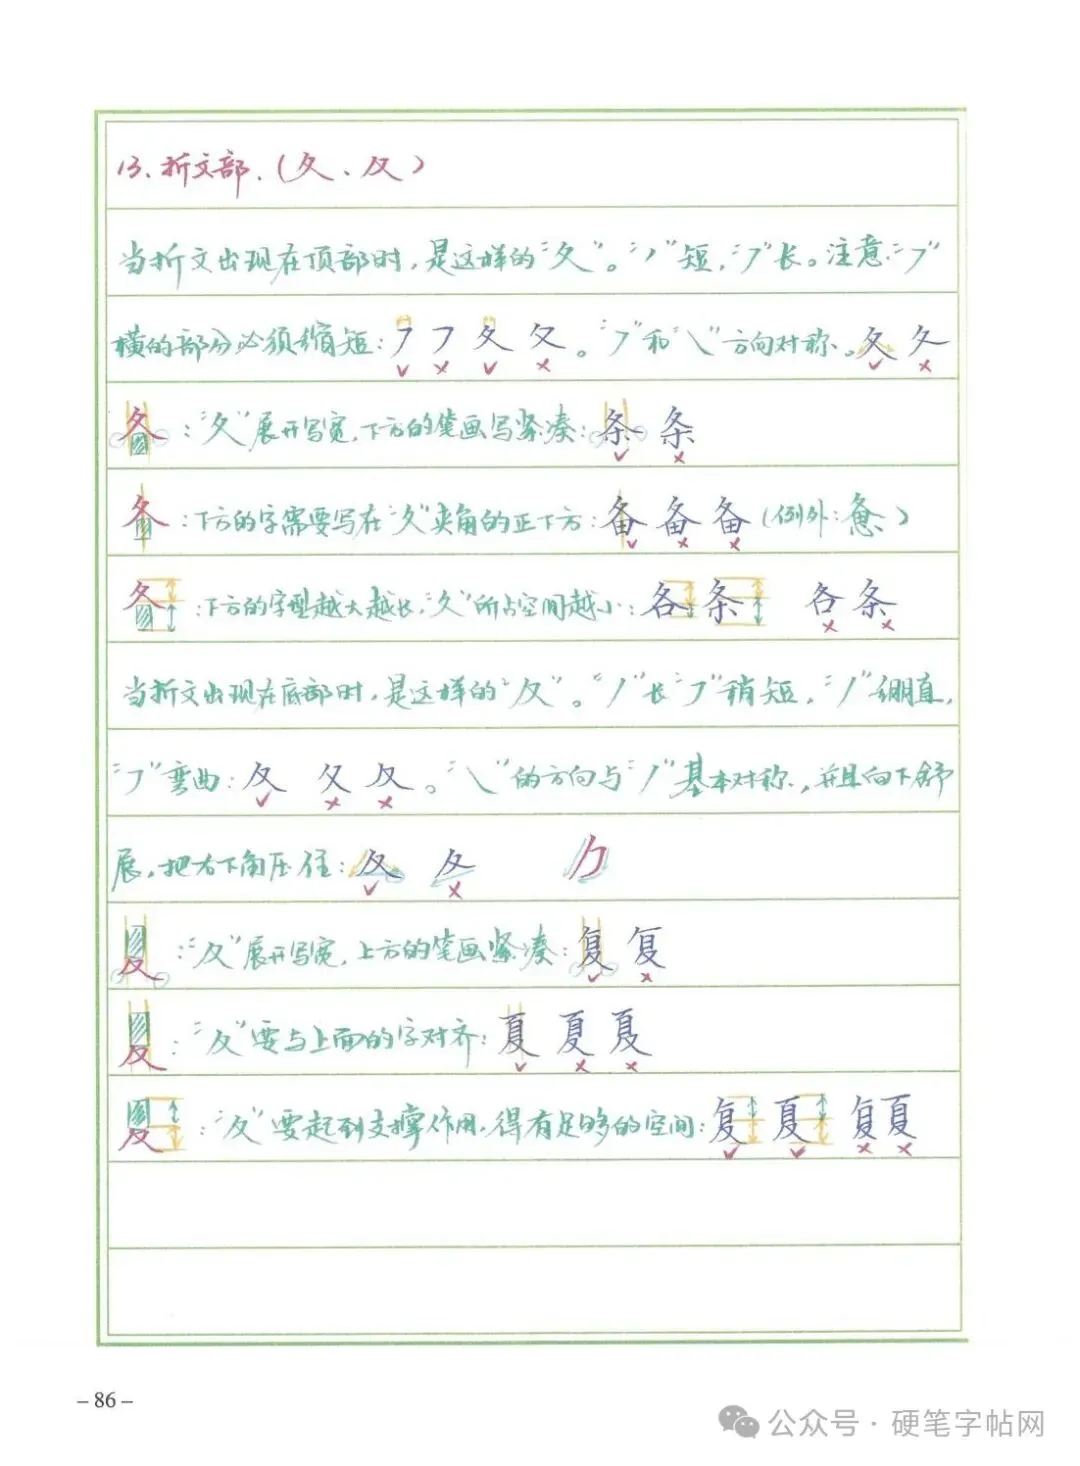 13、折文部.（夂、夊）
当折文出现在顶部时，是这样的“夂”。“丿”短，“㇇”长。注意“㇇”
横的部分必须缩短：㇇ ㇇ 夂 夂。“㇇”和“㇏”方向对称。夂 夂
夂：“夂”展开写宽，下方的笔画写紧凑：条 条
夂：下方的字需要写在“夂”夹角的正下方：备 备 备（例外：惫）
夂：下方的字型越大越长，“夂”所占空间越小：各 条 各 条
当折文出现在底部时，是这样的“夊”。“丿”长“㇇”稍短，“丿”绷直，
“㇇”弯曲：夊 夊 夊。“㇏”的方向与“丿”基本对称，并且向下舒
展，把右下角压住：夊 夊
夊：“夊”展开写宽，上方的笔画紧凑：复 复
夊：“夊”要与上面的字对齐：夏 夏 夏
夊：“夊”要起到支撑作用，得有足够的空间：复 夏 复 夏
– 86 –
公众号 · 硬笔字帖网